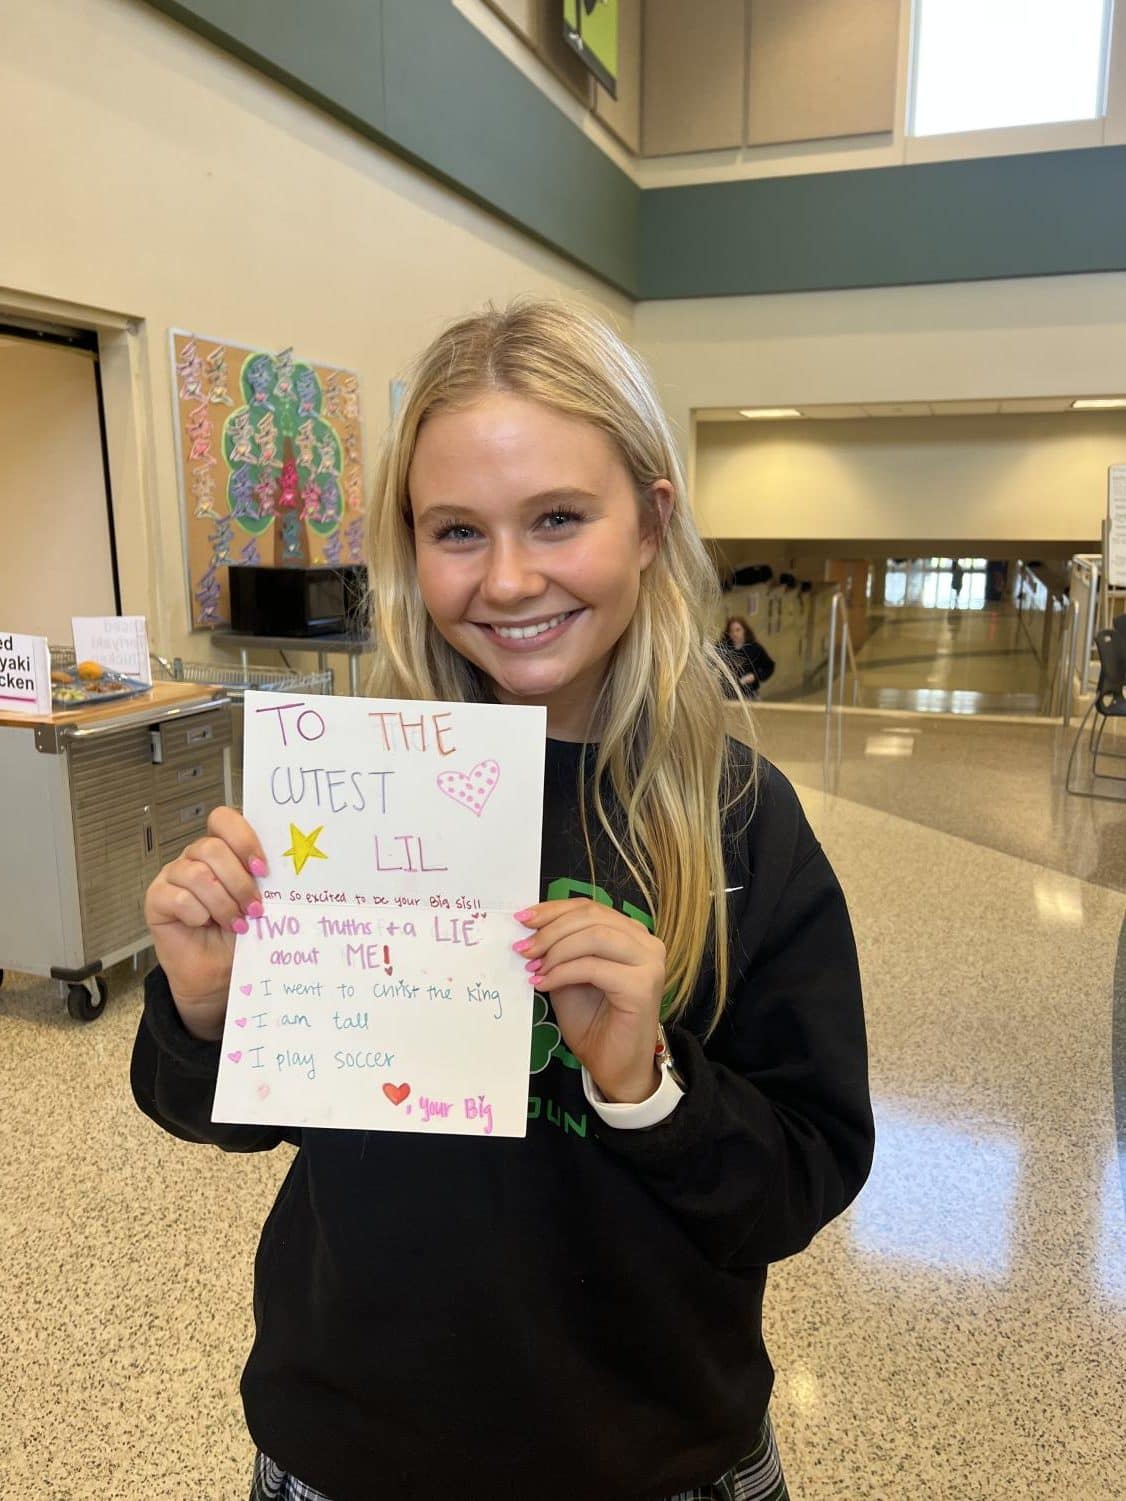 ed
yaki
cken
TO THE
CUTEST
LIL
am so excited to be your Big sis!!
TWO truths + a LIE
about ME!
I went to Christ the King
I am tall
I play soccer
, your Big
OUN